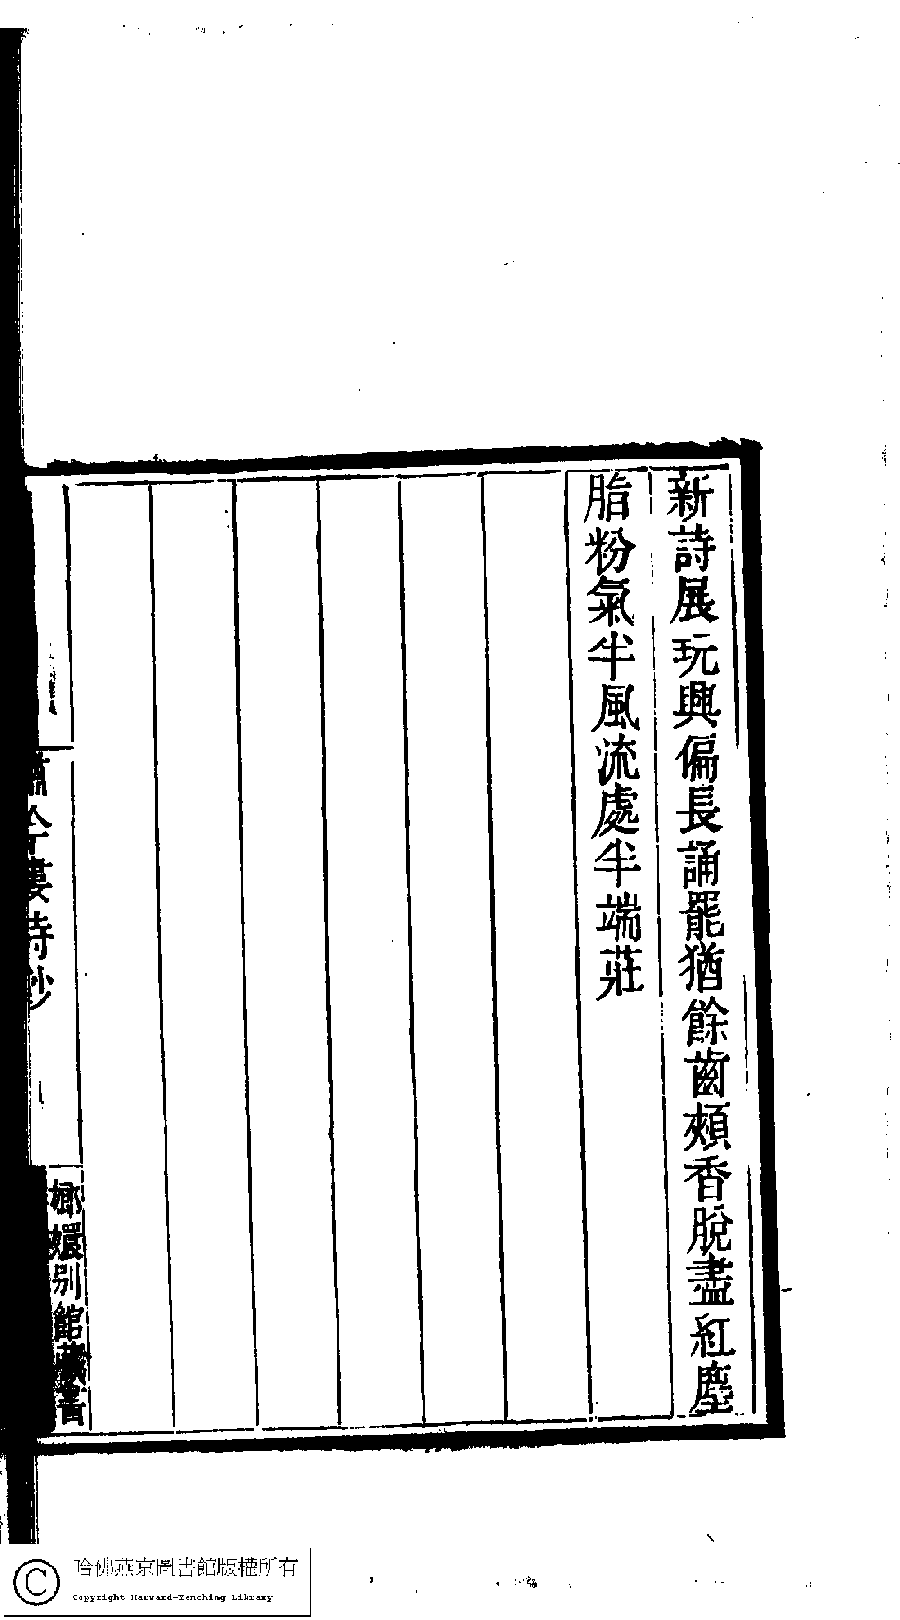 新詩展玩興偏長誦罷猶餘齒頰香脫盡紅塵
脂粉氣半風流處半端莊
詩鈔
嫏嬛别館藏書
哈佛燕京圖書館版權所有
Copyright Harvard-Yenching Library